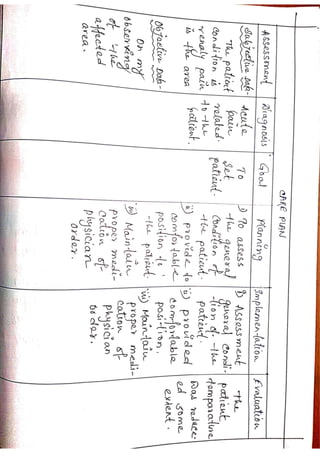 CARE PLAN
Assessment
Diagnosis
Goal
Planning
Implementation
Evaluation
Subjective Data-
The patient
condition is
renely pain
is the area
Objective Data-
On my
observing
of the
affected
area.
Acute
pain
related
to the
patient.
To
set
patient.
i) To assess
the general
condition of
the patient.
ii) provide to
comfortable
position to
the patient.
iii) Maintain
proper medi-
cation of
physician
order.
i) Assessment
general condi-
tion of the
patient.
ii) provided
comfortable
position.
iii) Maintain
proper medi-
cation of
physician
order.
The
patient
temparature
was reduce-
ed some
extent.